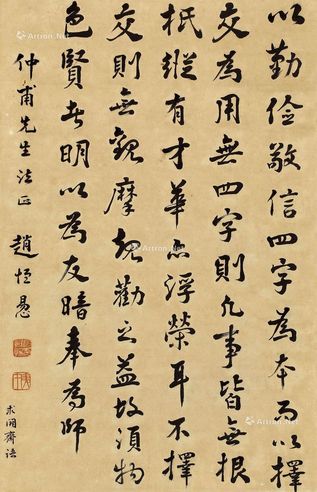 以勤儉敬信四字為本而以擇
交為用無四字則凡事皆無根
柢縱有才華亦浮榮耳不擇
交則無觀摩規勸之益故須物
色賢者明以為友暗奉為師
仲甫先生法正
趙恆惕
求闕齋語